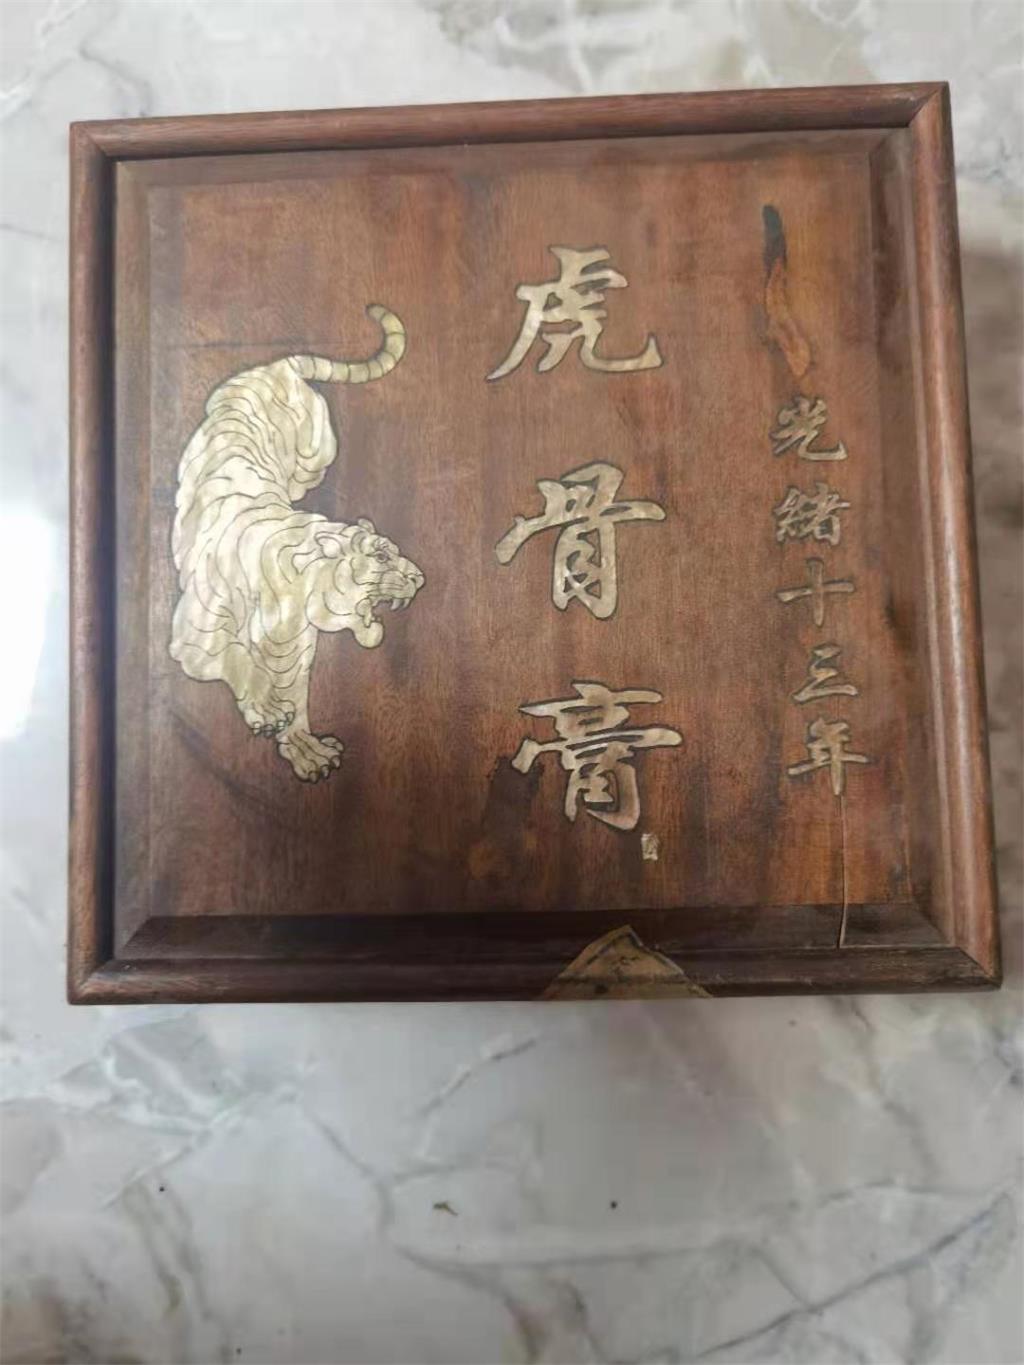 光緒十三年
虎骨膏